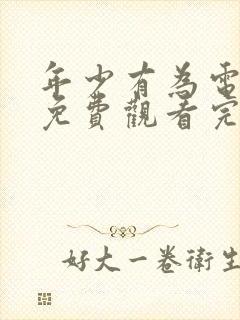 年少有為電
免費觀看完
好大一卷衛生